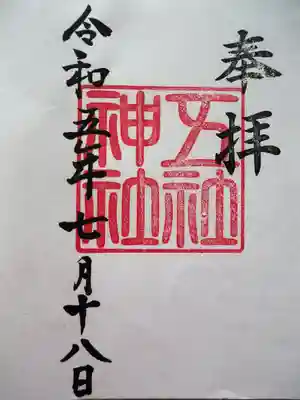 奉拝
五社
神社
令和五年七月十八日